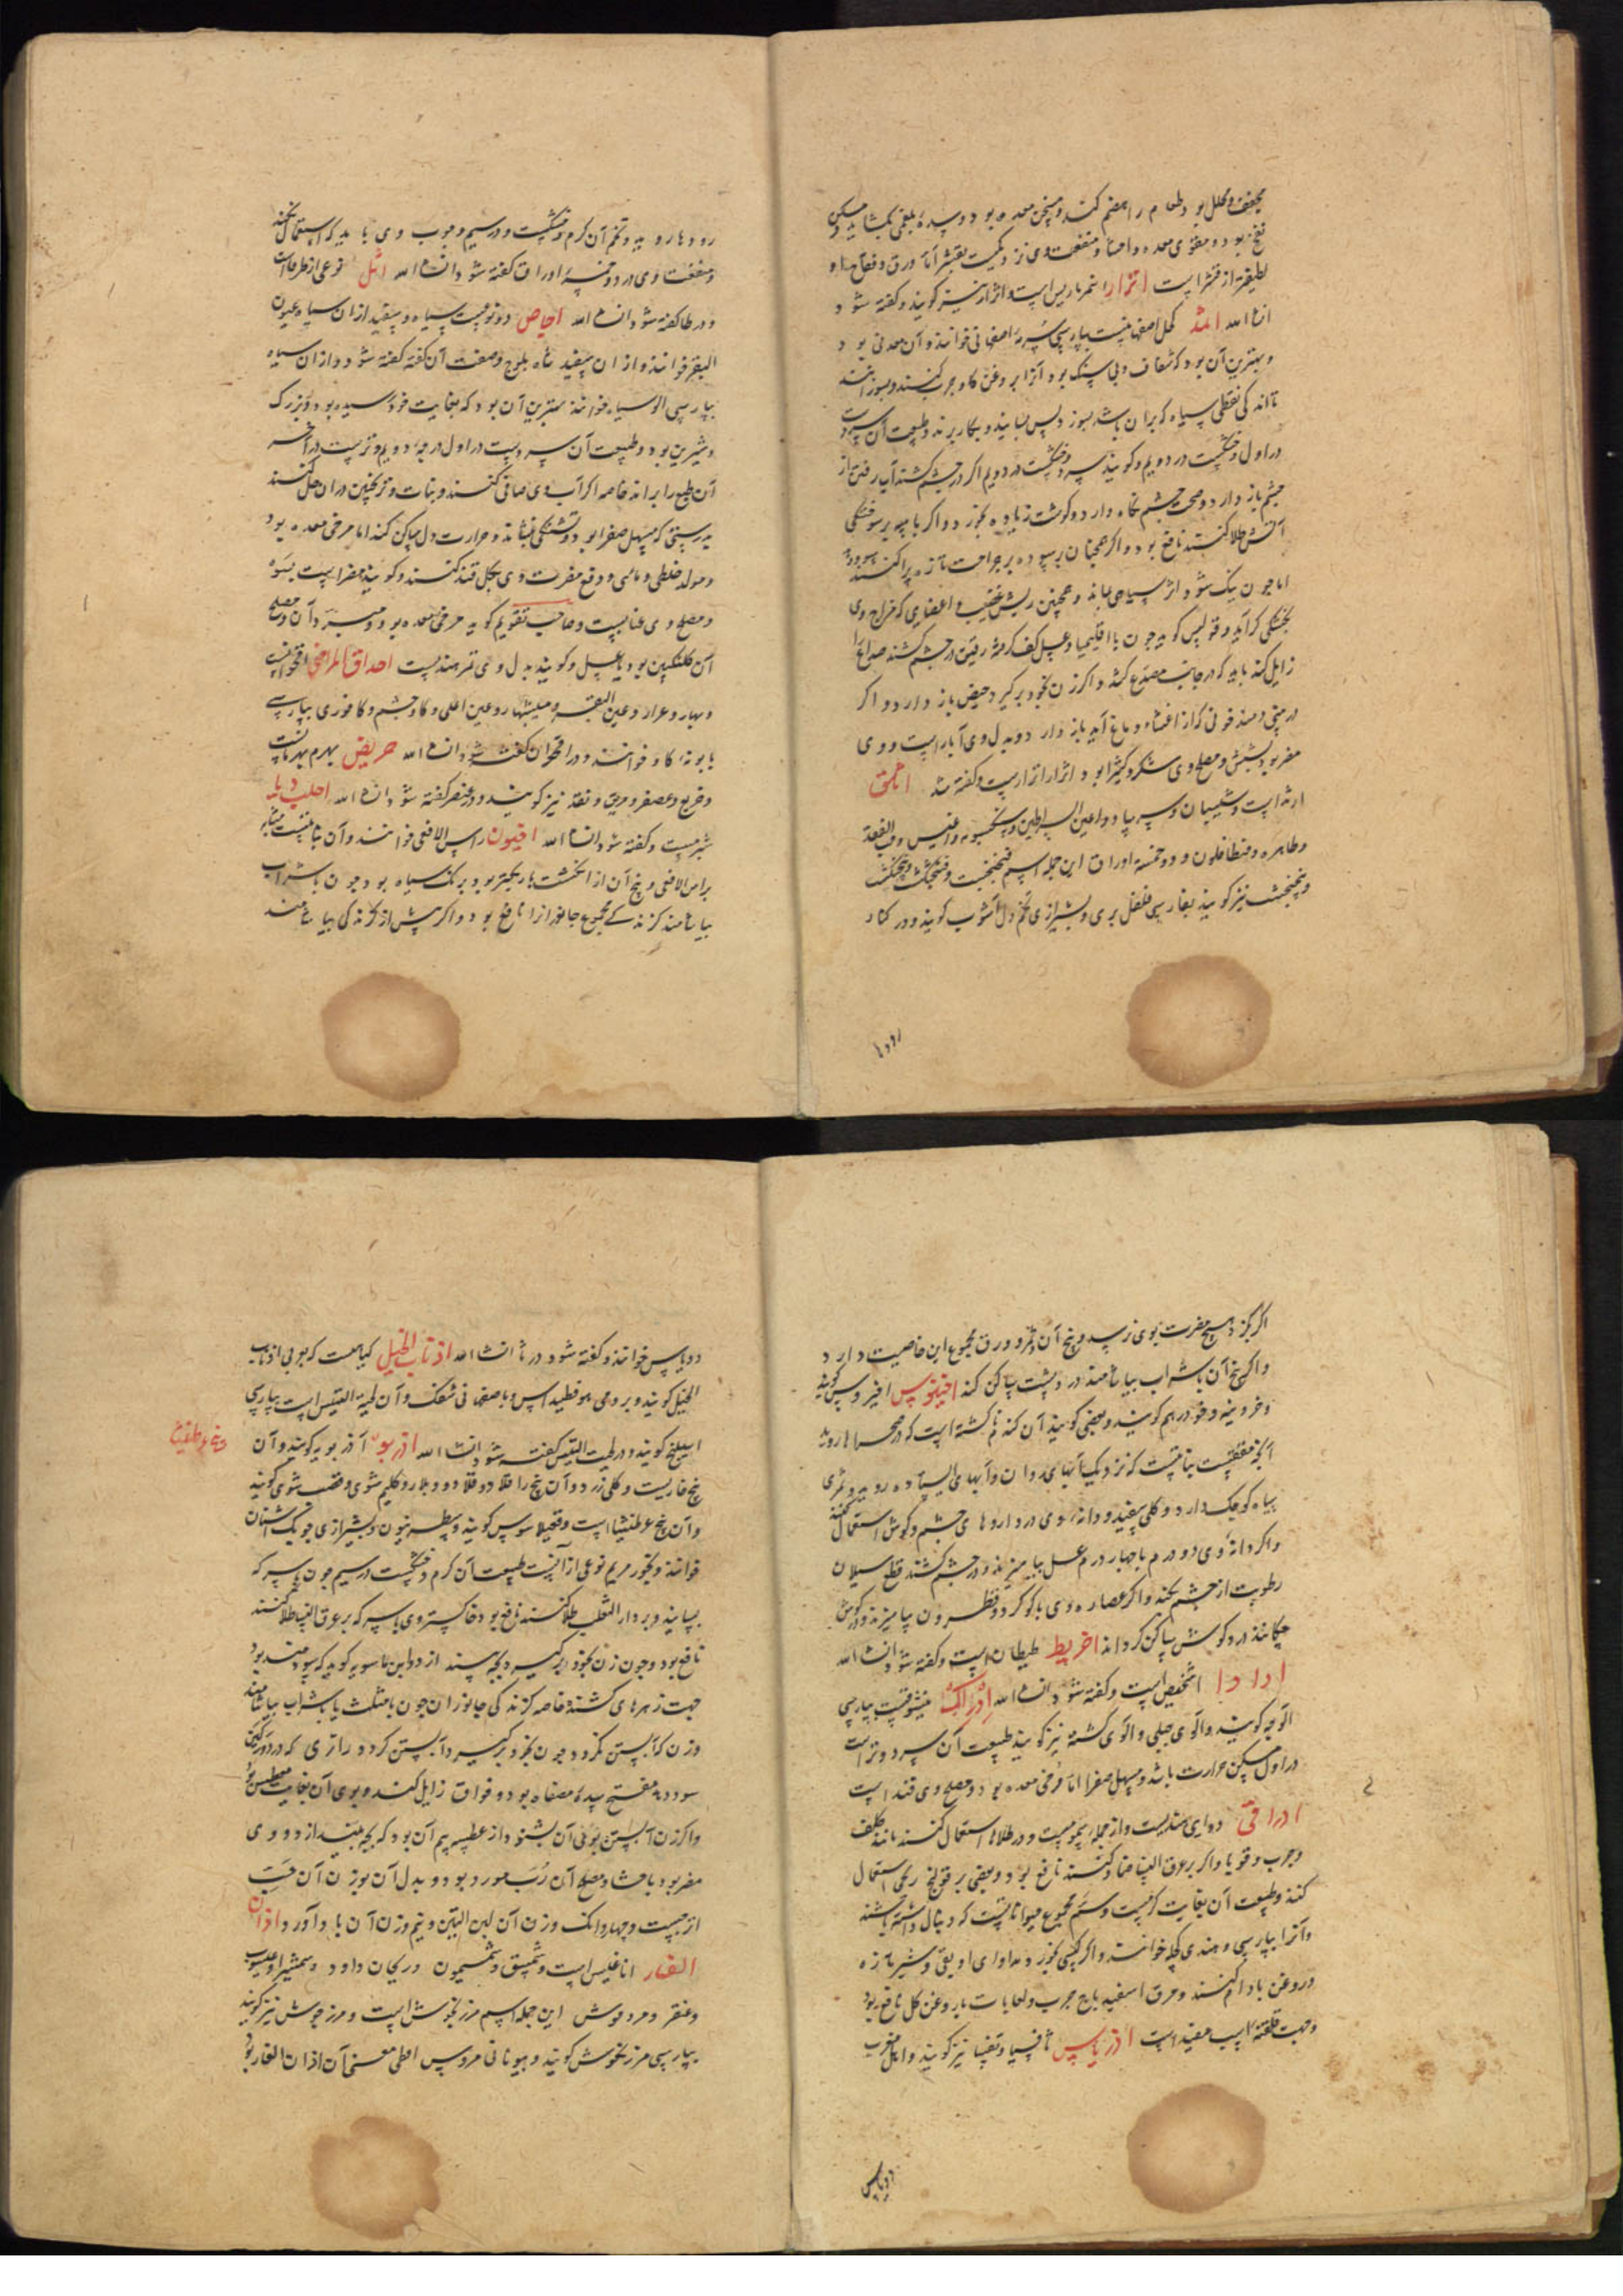 مجفف و محلل بود و طعام را هضم کند و مسخن معده بود و سده بلغمی بکشاید و مسکن
نفخ بود و مقوی معده و امعا و منفعت وی نزدیکیست بقشر اما ورق و فقاح او
لطیفتر از قشر است اترار انبرباریس است و اترار نیز گویند و گفته شود
ان شاء الله اثمد کحل اصفهانیست بپارسی سرمه اصفهانی خوانند و آن معدنی بود
و بهترین آن بود که شفاف و بی سنگ بود آنرا بروغن گاو چرب کنند و بسوزانند
تا اندکی نفطی سیاه که بران باشد بسوزد پس بسایند و بکار برند و طبیعت آن سردست
در اول و خشکست در دویم و گویند سرد و خشکست در دویم اگر در چشم کشند آب رفتن از
چشم باز دارد و صحت چشم نگاه دارد و گوشت زیاده بخورد و اگر با پیه بر سوختگی
آتش طلا کنند نافع بود و اگر همچنان سوده بر جراحت تازه پراکنند سود دهد
اما چون نیک شود اثر سیاهی بماند و همچنین ریش قضیب و اعضایی که مزاج وی
بخشکی گراید و قولس گوید چون با اقلیمیا و عسل کف گرفته رقیق در چشم کشند صداع را
زایل کند باید که در جانب مصدع کشد و اگر زن بخود برگیرد حیض باز دارد و اگر
در بینی دمند خونی که از اغشاء دماغ آید باز دارد و بدل وی آبار است و وی
مضر بود بشش و مصلح وی شکر و کتیرا بود اثرار اترار است و گفته شد اثلق
ارثد است و سیسبان و سرساد و اعین السراطین و سنجسبویه و اغنیس و حب الفقد
و طاهره و فنطافلون و دو خمسه اوراق این جمله اسم فنجنکشت و فنجنگشت و پنجنگشت
و پنجنجشت نیز گویند بفارسی فلفل بری و بشیرازی تخم دل آشوب گویند و در کنار
رودها
رودها روید و تخم آن گرم و خشکست در سیم و چوب وی باید که استعمال نکنند
و منفعت وی در دو خمسه اوراق گفته شود ان شاء الله اثل نوعی از طرفاست
و در طا گفته شود ان شاء الله اجاص دو نوعست سیاه و سفید از ان سیاه عیون
البقر خوانند و از ان سفید شاه بلوج و صفت آن گفته شود و از ان سیاه
بپارسی الو سیاه خوانند بهترین آن بود که بغایت خود رسیده بود و بزرگ
و شیرین بود و طبیعت آن سردست در اول درجه دویم و ترست در آخر
آن طبع را براند خاصه اگر آب وی صافی کنند و نبات و ترنجبین در ان حل کنند
بدرستی که مسهل صفرا بود و تشنگی بنشاند و حرارت دل ساکن کند اما مرخی معده بود
و مولد خلطی و مائی و دفع مضرت وی بگل قند کنند و گویند مضر است بسود
و مصلح وی عنابست و صاحب تقویم گوید مرخی معده بود و مبرد آن و مصلح
آن گلنگبین بود یا عسل و گویند بدل وی تمر هندیست احداق المراضی اقحوانست
و بهار و عرار و عین البقر و عین اعلی و گاوچشم و کافوری بپارسی
بابونه گاو خوانند و در اقحوان گفته شود ان شاء الله احریض بهرم بهرمانست
و خریع و عصفر و مریق و نقد نیز گویند و در عصفر گفته شود ان شاء الله احلیدیا
شبرمست و گفته شود ان شاء الله اخیون راس الافعی خوانند و آن نباتیست
براس الافعی و بیخ آن از انگشت باریکتر بود برنگ سیاه بود چون با شراب
بیاشامند گزندگی مجموع جانوران را نافع بود و اگر پیش از گزندگی بیاشامند
اگر بگزد هیچ مضرت بوی نرسد و بیخ آن و ثمر و ورق مجموع این خاصیت دارد
و اگر بیخ آن با شراب بیاشامند درد پشت ساکن کند اخینوس اخیروس گویند
و خروینه و خودرهم گویند و بعضی گویند آن گندم ناکشته است که در صحراها روید
آنچه محققست نباتیست که نزدیک آبهای روان و آبهای ایستاده روید و ثمری
سیاه کوچک دارد و گلی سفید و دانه وی در داروهای چشم و گوش استعمال کنند
و اگر دانه وی دو درم با چهار درم عسل بیامیزند و در چشم کشند قطع سیلان
رطوبت از چشم بکند و اگر عصاره وی با گوگرد و نطرون بیامیزند و در گوش
چکانند درد گوش ساکن گرداند اخریط طیطان است و گفته شود ان شاء الله
ادادا اشخیص است و گفته شود ان شاء الله ادرک نیشوقست بپارسی
الوجه گویند و آلوی جبلی و الوی کشته نیز گویند طبیعت آن سرد و تر است
در اول مسکن حرارت باشد و مسهل صفرا اما مرخی معده بود و مصلح وی قند است
ادراقی دوای هندیست و از جمله سمومست و در طلاها استعمال کنند مانند کلف
و جرب و قوبا و اگر بر عرق النسا ضماد کنند نافع بود و بعضی بر قولنج ریحی استعمال
کنند و طبیعت آن بغایت گرمست و سم مجموع حیواناتیست که دنبال داشته باشند
و آنرا بپارسی و هندی کچله خوانند و اگر کسی بخورد مداوای او بقی و شیر تازه
و روغن بادام کنند و مرق اسفیدباج چرب و لعابات با روغن گل نافع بود
و جهت قلعه اسب مفید است ادریاس ثافسیا و تفسیا نیز گویند و اهل مغرب
دریاس
دریاس خوانند و گفته شود در ثا ان شاء الله اذناب الخیل گیاهست که بوبی اذناب
الخیل گویند و برومی هوقطیداس و باصفهانی شنک و آن لحیة التیس است بپارسی
اسپلنج گویند و در لحیت التیس گفته شود ان شاء الله اذربو آذربویه گویند و آن
بیخ خاریست و گلی زرد و آن بیخ را فلا دو فلا دو و بلارو گلیم شوی و قصب شوی گویند
و آن بیخ عرطنیثا است و قعیلا سوس گویند و سطرنیون و بشیرازی چوبک اشنان
خوانند و بخور مریم نوعی از آنست طبیعت آن گرم و خشکست در سیم چون با سرکه
بسایند و بر داء الثعلب طلا کنند نافع بود و خاکستر وی با سرکه بر عرق النسا طلا کنند
نافع بود و چون زن بخود برگیرد بچه بیندازد و ابن ماسویه گوید که سودمند بود
جهت زهرهای کشنده خاصه گزندگی جانوران چون با مثلث یا با شراب بیاشامند
وزن که آبستن نگردد چون بخود برگیرد آبستن گردد و رازی
سود دهد مفتح سده مصفاه بود و فواق زایل کند و بوی آن بغایت معطس بود
و اگر زن آبستن بوی آن بشنود از عطسه بیم آن بود که بچه بیندازد و وی
مضر بود باحشا و مصلح آن رب مورد بود و بدل آن بوزن آن حب
و چهار دانک وزن آن لبن التین و نیم وزن آن بادآورد اذان
الفار اناغلیس است و شمیسق و شمیمون و ریحان داود و سمشیرا و عیسوب
و عنقر و مردقوش این جمله اسم مرزنجوش است و مرزجوش نیز گویند
بپارسی مرزنگوش گویند و بیونانی مروس اطی معنی آن اذان الفار بود